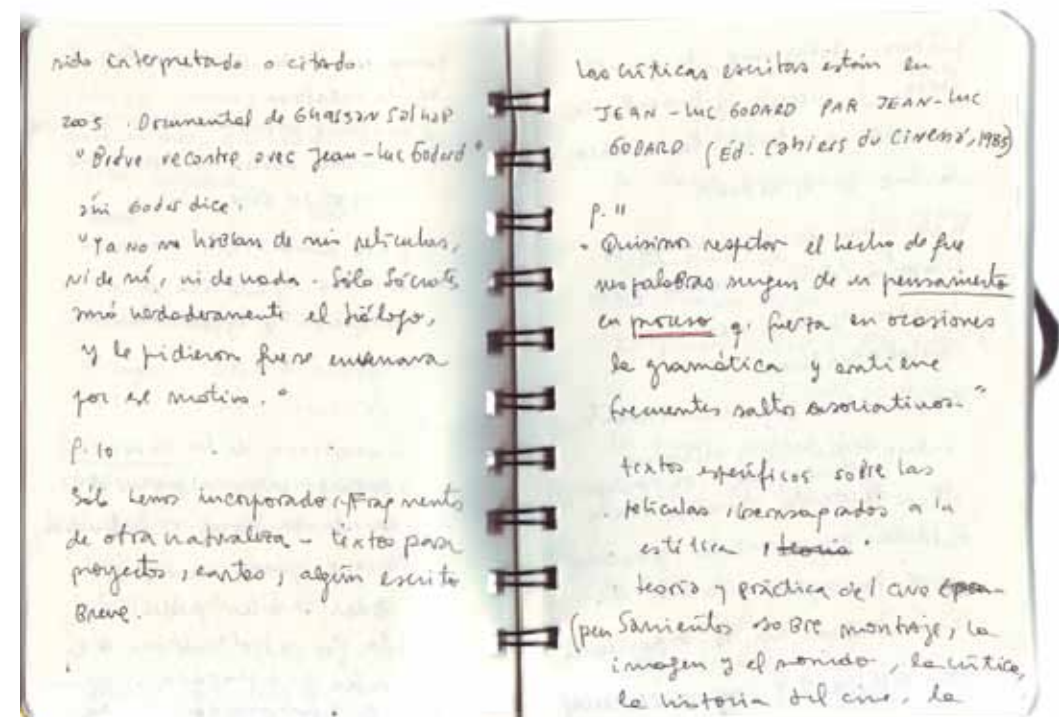 sido interpretado o citado.
2005. Documental de Ghassan Salhab
"Brève rencontre avec Jean-Luc Godard"
dice.
"Ya no me hablan de mis películas,
ni de mí, ni de nada. Sólo Sócrates
amó verdaderamente el diálogo,
y le pidieron fuese envenenara
por ese motivo."
p. 10
Sólo hemos incorporado fragmentos
de otra naturaleza - textos para
proyectos, cartas, algún escrito
Breve.
Las críticas escritas están en
JEAN-LUC GODARD PAR JEAN-LUC
GODARD (Ed. Cahiers du Cinema, 1985)
p. 11
"Quisimos respetar el hecho de que
sus palabras surgen de un pensamiento
en proceso q. fuerza en ocasiones
la gramática y contiene
frecuentes saltos asociativos."
textos específicos sobre las
películas, consagrados a la
estética, teoría
teoría y práctica del cine
(pensamientos sobre montaje, la
imagen y el sonido, la crítica,
la historia del cine, la